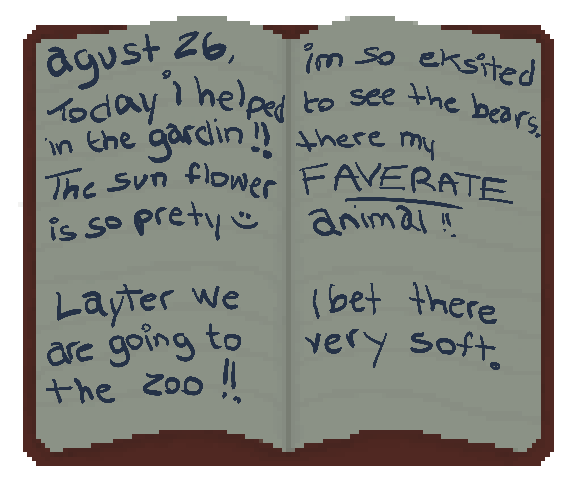 agust 26,
Today i helped
in the gardin !!
The sun flower
is so prety :)
Layter we
are going to
the zoo !!
im so eksited
to see the bears.
there my
FAVERATE
animal !!
I bet there
very soft.